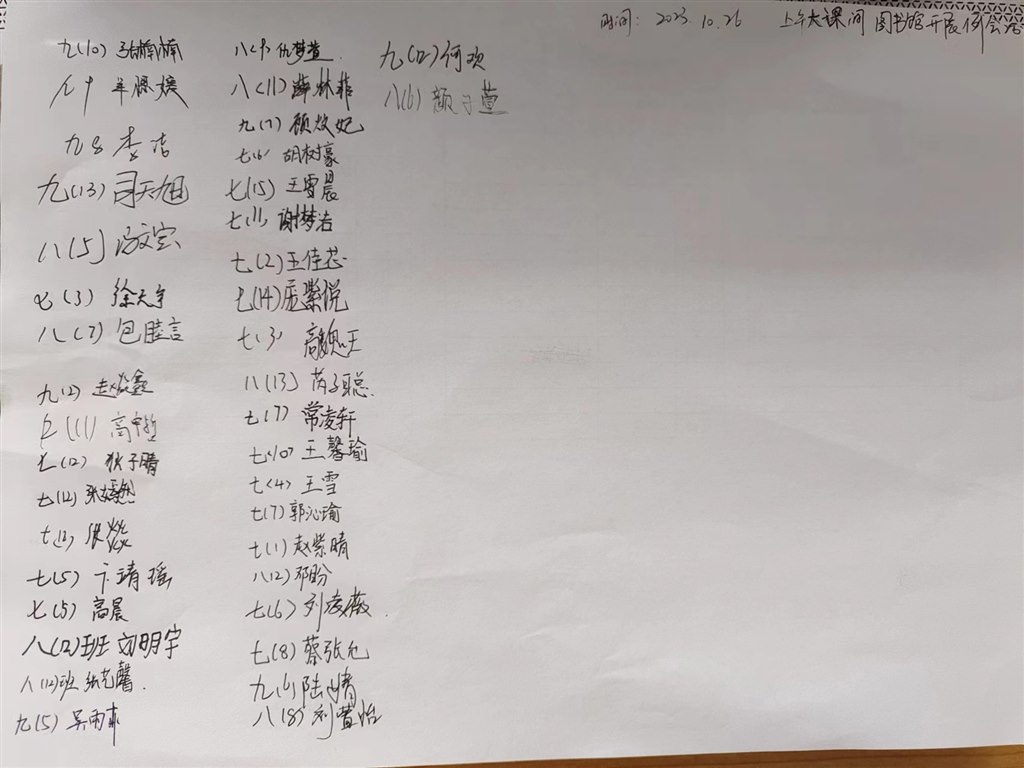 时间: 2023.10.26 上午大课间 图书馆开展例会
九(10)
九9
九8 李洁
九(13) 司天旭
八(5)
七(3) 徐天宇
八(7) 包睦言
九(2) 赵焱鑫
七(11) 高
七(12) 狄子晴
七(12) 张嫣然
七(12) 张
七(5) 卞靖瑶
七(5) 高晨
八(12)班 刘明宇
八(12)班 张艺馨.
九(5) 吴雨
八(9) 仇梦萱.
八(11) 薛林菲
九(7) 顾放妃
七(6) 胡树豪
七(15) 王雪晨
七(1) 谢梦洁
七(2) 王佳芯
七(14) 紫悦
七(3)
八(13) 芮子聪.
七(7) 常凌轩
七(10) 王馨瑜
七(4) 王雪
七(7) 郭沁瑜
七(1) 赵紫晴
八(12) 邓盼
七(6) 刘凌薇.
七(8) 蔡张允
九(6) 陆倩
八(8) 刘萱怡
九(12) 何欢
八(6) 颜子萱